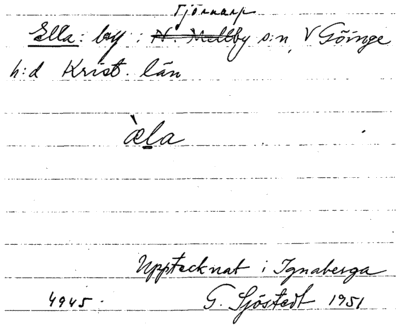 Tjörnarp
Ella: by i N. Mellby s:n, V Göinge
h:d Krist. län
àela
Upptecknat i Ignaberga
4945. G. Sjöstedt 1951